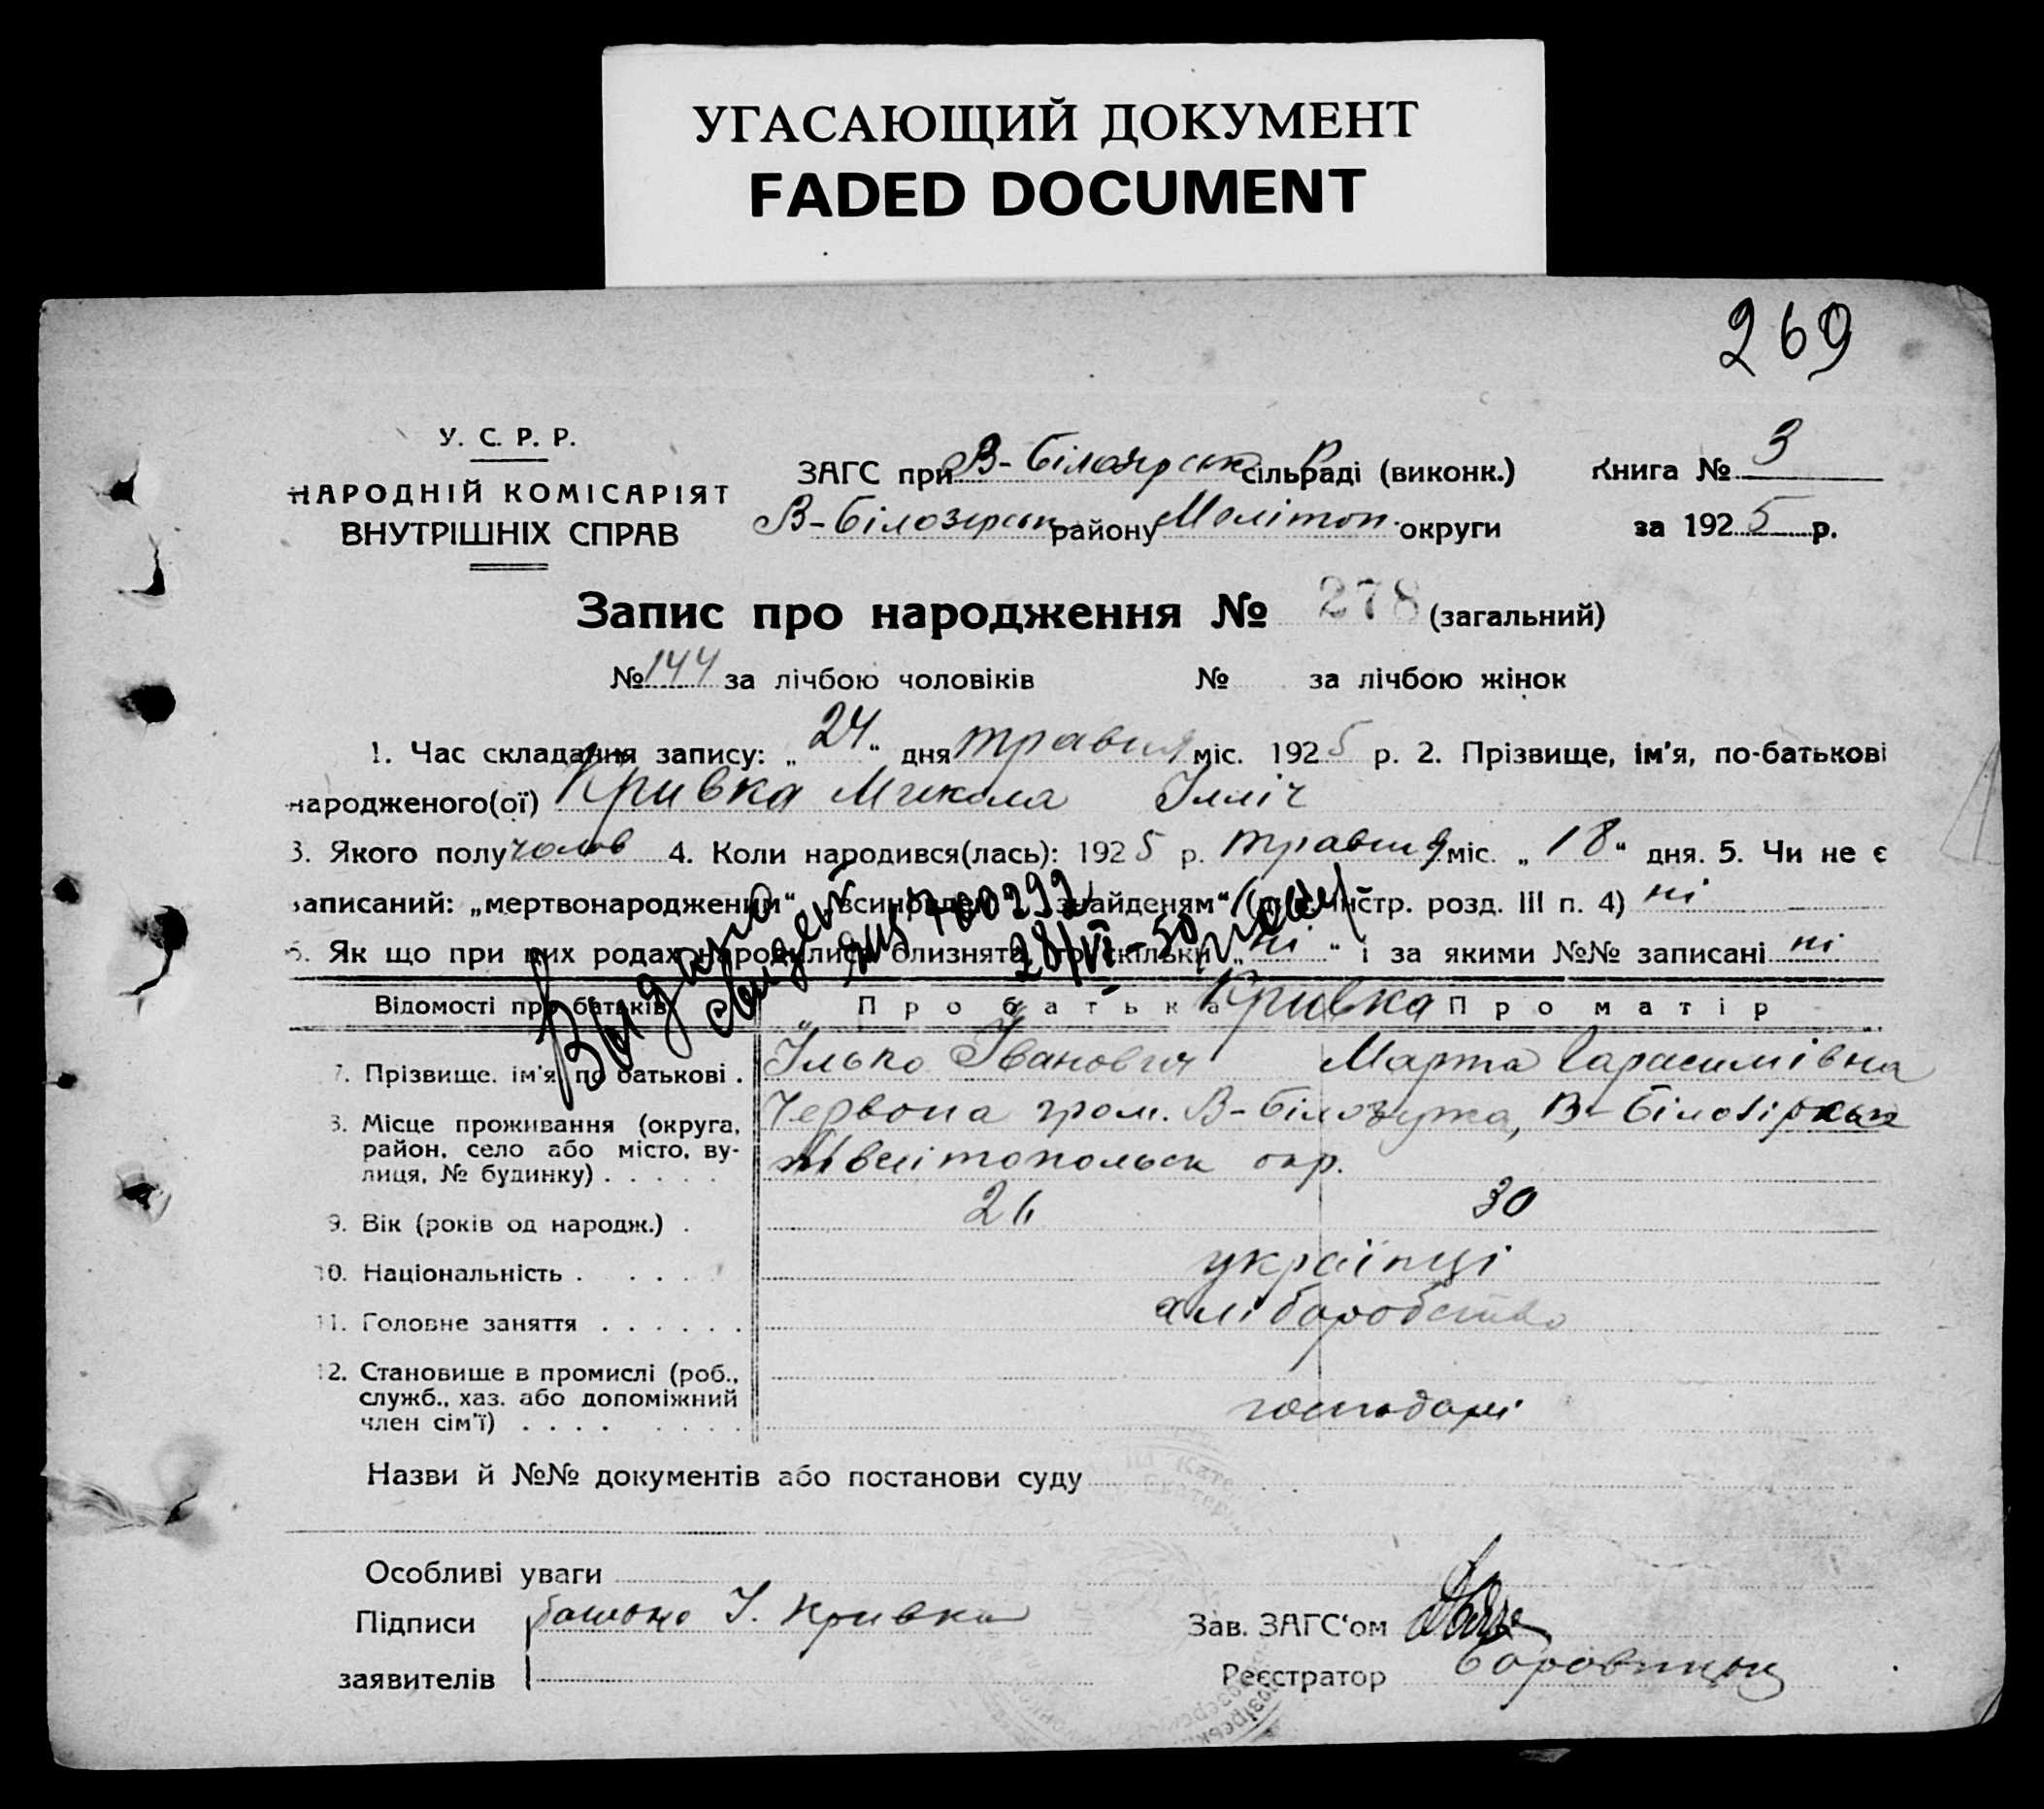 УГАСАЮЩИЙ ДОКУМЕНТ
FADED DOCUMENT
269
У. С. Р. Р.
НАРОДНІЙ КОМІСАРІЯТ
ВНУТРІШНІХ СПРАВ
ЗАГС при В-Білозірськ сільраді (виконк.) Книга № 3
В-Білозерськ району Мелітоп. округи за 1925 р.
Запис про народження № 278 (загальний)
№ 144 за лічбою чоловіків № за лічбою жінок
1. Час складання запису: „24" дня травня міс. 1925 р. 2. Прізвище, ім'я, по-батькові
народженого(ої) Кривка Микола Ілліч
3. Якого полу чолов 4. Коли народився(лась): 1925 р. травня міс. „18" дня. 5. Чи не є
записаний: „мертвонароджений", „всиновлен", „знайденям" (див. інстр. розд. III п. 4) ні
6. Як що при цих родах народилися близнята, то скільки „ні" і за якими №№ записані ні
Видано
28/VI-50
Відомості про батьків Про батька Кривка Про матір
7. Прізвище, ім'я, по батькові . Ілько Іванович Марта Гарасимівна
8. Місце проживання (округа, Червона гром. В-Білозірка, В-Білозірськ
район, село або місто, ву- Мелітопольськ окр.
лиця, № будинку) . . . . .
9. Вік (років од народж.) . 26 30
10. Національність . . . . українці
11. Головне заняття . . . . . . хліборобство
12. Становище в промислі (роб.,
служб., хаз. або допоміжний господарі
член сім'ї) . . . . . . . .
Назви й №№ документів або постанови суду
Особливі уваги
Підписи батько І. Кривка Зав. ЗАГС'ом
заявителів Реєстратор